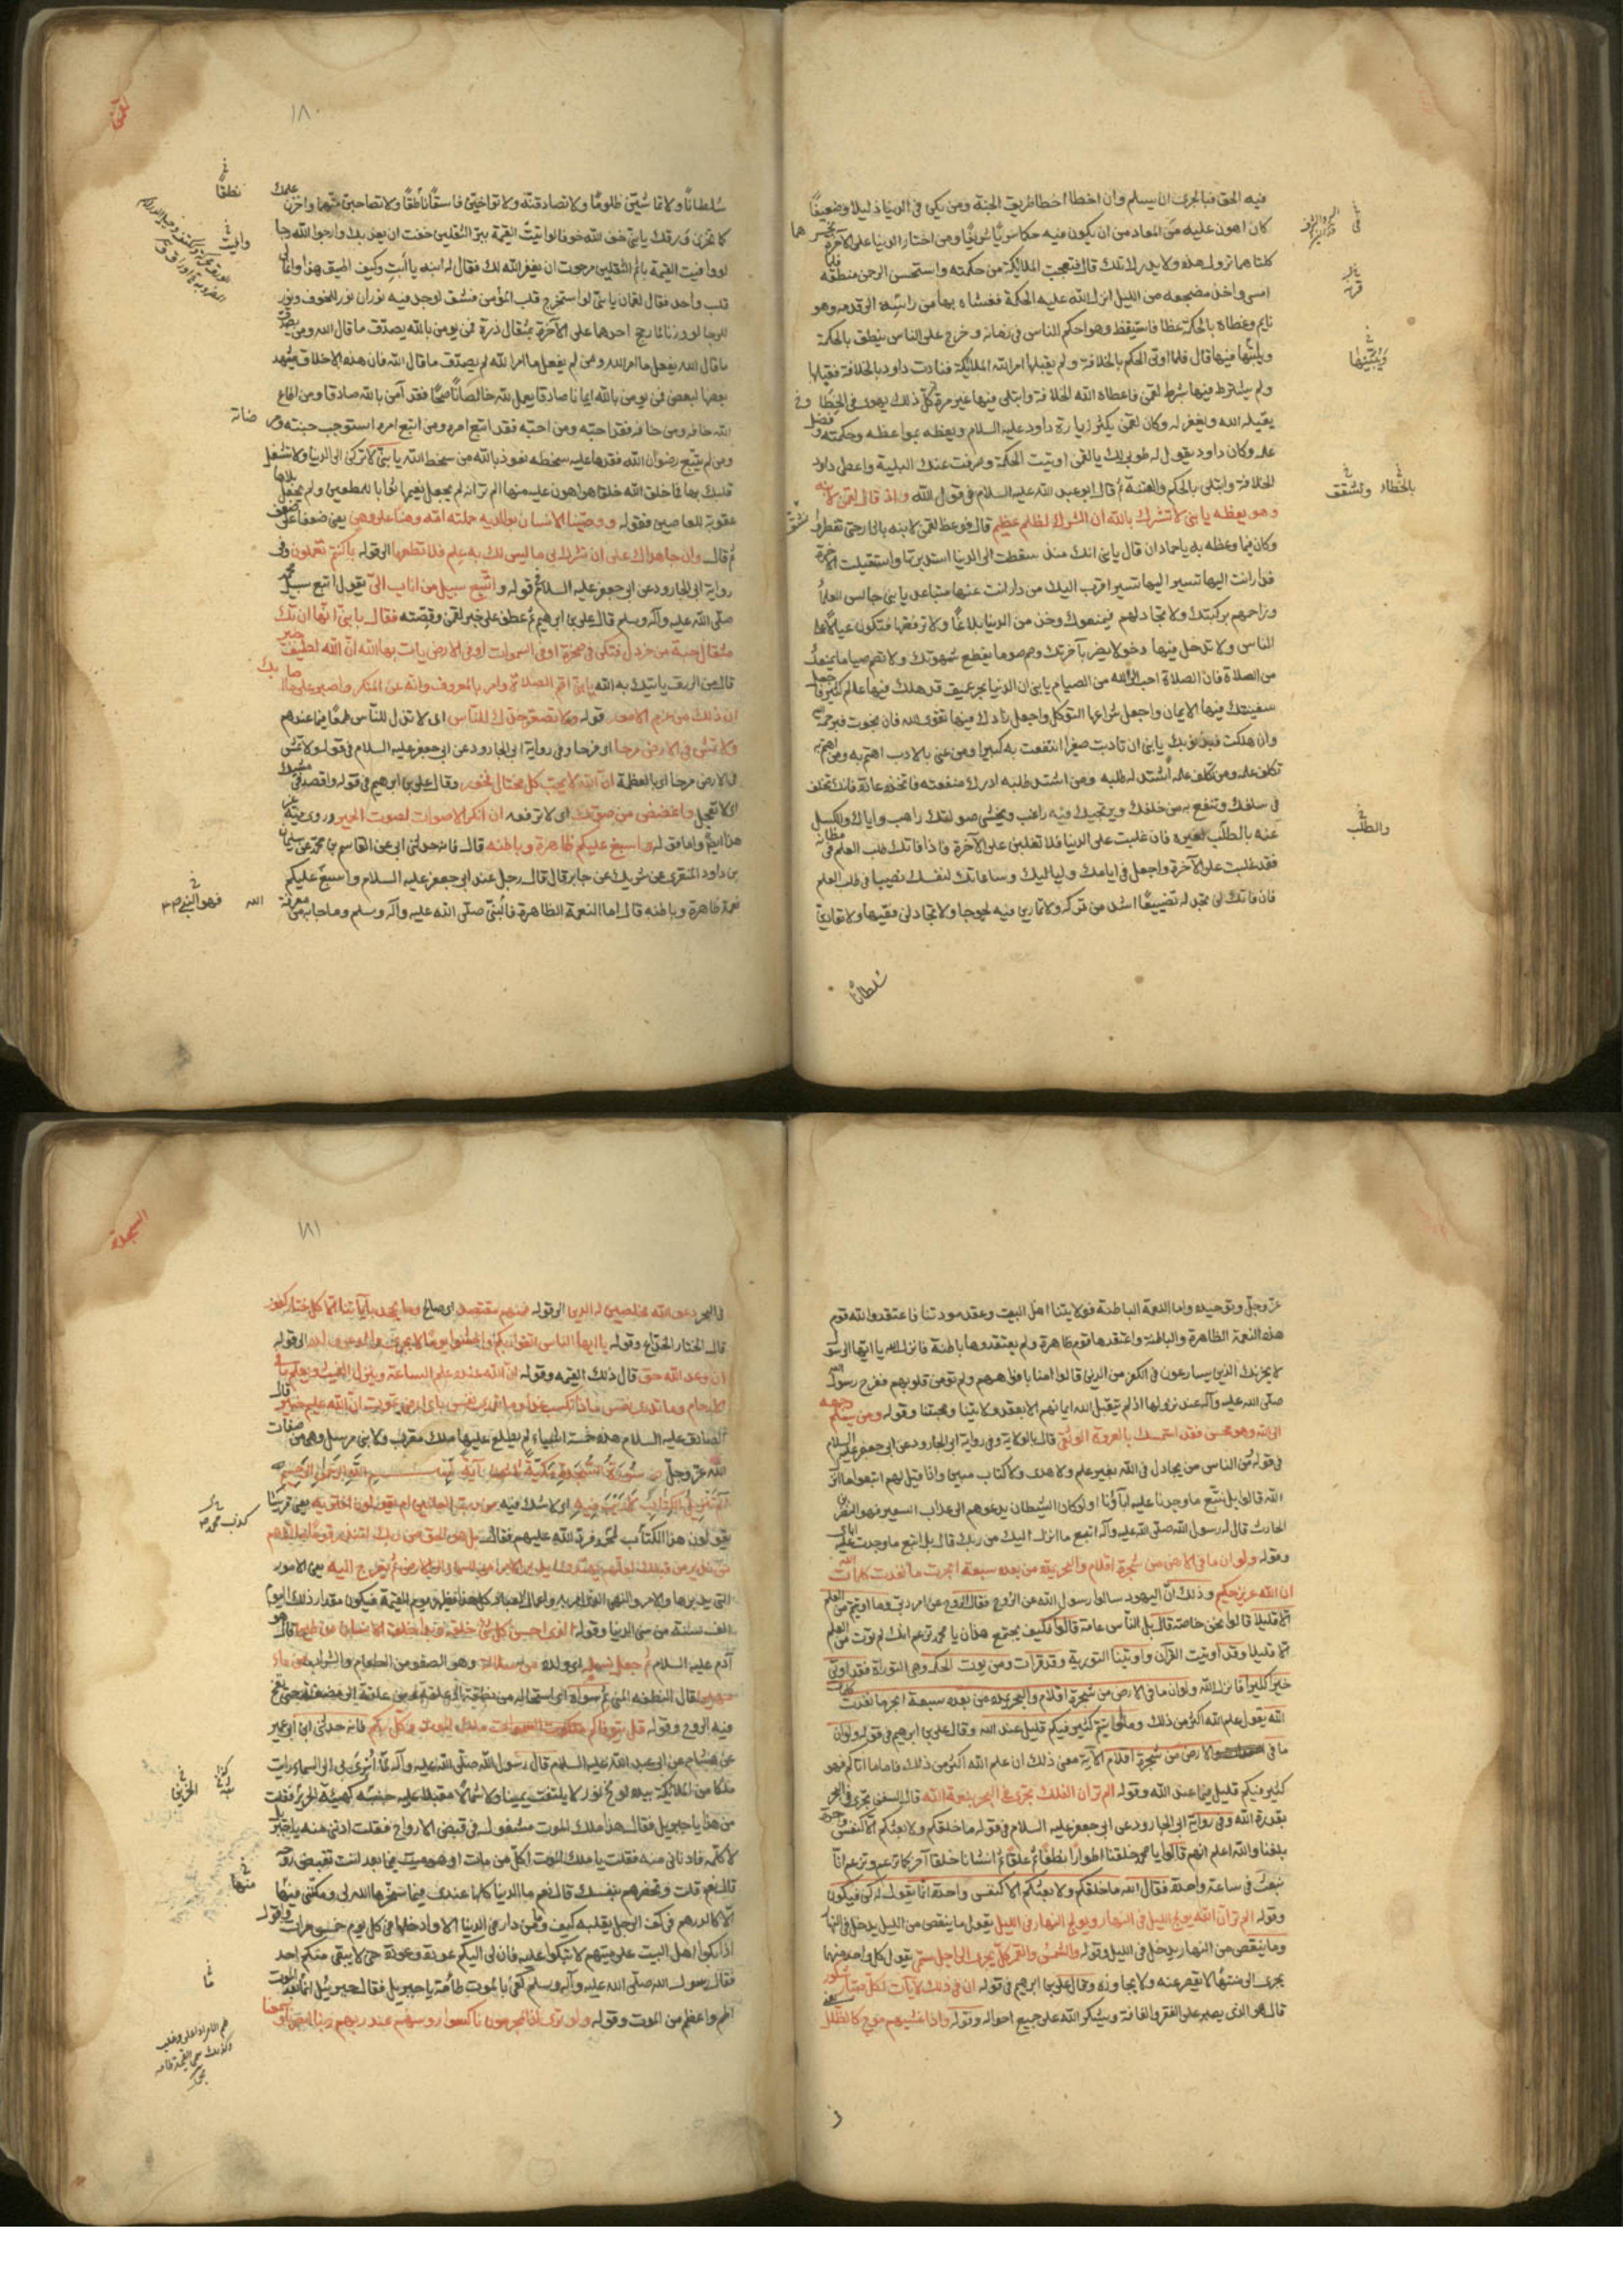 فيه الحق فبالحرى ان يسلم وان اخطا اخطا طريق الجنة ومن يكن فى الدنيا ذليلا وضعيفا
كان اهون عليه من المعاد من ان يكون فيه حكما سريا شريفا ومن اختار الدنيا على الآخرة يخسرهما
كلتاهما تزول هذه ولا يدرك تلك قال فتعجب الملائكة من حكمته واستحسن الرحمن منطقه فلما
امسى واخذ مضجعه من الليل انزل الله عليه الحكمة فغشاه بها من راسه الى قدمه وهو
نايم وغطاه بالحكمة غطا فاستيقظ وهو احكم الناس فى زمانه وخرج على الناس ينطق بالحكمة
ويثبتها فيها قال فلما اوتى الحكم بالخلافة ولم يقبلها امر الله الملائكة فنادت داود بالخلافة فقبلها
ولم يشترط فيها بشرط لقمن فاعطاه الله الخلافة وابتلى فيها غير مرة كل ذلك يهوى فى الخطا
يقيله الله ويغفر له وكان لقمن يكثر زيارة داود عليه السلام ويعظه بمواعظه وحكمته وفضل
علمه وكان داود يقول له طوبى لك يا لقمن اوتيت الحكمة وصرفت عنك البلية واعطى داود
الخلافة وابتلى بالحكم والفتنة ثم قال ابو عبد الله عليه السلام فى قول الله واذ قال لقمن لابنه
وهو يعظه يا بنى لا تشرك بالله ان الشرك لظلم عظيم قال فوعظ لقمن لابنه باثار حتى تفطر
وكان فيما وعظه به يا حماد ان قال يا بنى انك منذ سقطت الى الدنيا استدبرتها واستقبلت الاخرة
فدار انت اليها تسير اقرب اليك من دار انت عنها متباعد يا بنى جالس العلماء
وزاحمهم بركبتك ولا تجادلهم فيمنعوك وخذ من الدنيا بلاغا ولا ترفضها فتكون عيالا على
الناس ولا تدخل فيها دخولا يضر بآخرتك وصم صوما يقطع شهوتك ولا تصم صياما يمنعك
من الصلاة فان الصلاة احب الى الله من الصيام يا بنى ان الدنيا بحر عميق قد هلك فيها عالم كثير فاجعل
سفينتك فيها الايمان واجعل شراعها التوكل واجعل زادك فيها تقوى الله فان نجوت فبرحمة الله
وان هلكت فبذنوبك يا بنى ان تادبت صغيرا انتفعت به كبيرا ومن عنى بالادب اهتم به ومن اهتم به
تكلف علمه ومن تكلف علمه اشتد له طلبه ومن اشتد طلبه ادرك منفعته فاتخذه عادة فانك تخلف
فى سلفك وتنفع به من خلفك ويرتجيك فيه راغب ويخشى صولتك راهب واياك والكسل
عنه بالطلب لغيره فان غلبت على الدنيا فلا تغلبن على الآخرة فاذا فاتك طلب العلم فى مظانه
فقد غلبت على الآخرة واجعل فى ايامك ولياليك وساعاتك لنفسك نصيبا فى طلب العلم
فان فاتك لن تجد له تضييعا اشد من تركه ولا تمارين فيه لجوجا ولا تجادلن فقيها ولا تعادين
سلطانا
ويبثها
بالخطاء
والطلب
لقمن
١٨٠
سلطانا ولا تماشين ظلوما ولا تصادقنه ولا تواخين فاسقا ناطقا ولا تصاحبن متهما واخزن علمك
كما تخزن ورقك يا بنى خف الله خوفا لو اتيت القيمة ببر الثقلين خفت ان يعذبك وارجوا الله رجا
لو وافيت القيمة باثم الثقلين رجوت ان يغفر الله لك فقال له ابنه يا ابت وكيف اطيق هذا وانما لى
قلب واحد فقال لقمان يا بنى لو استخرج قلب المؤمن فشق لوجد فيه نوران نور للخوف ونور
للرجا لو وزنا ما رجح احدهما على الآخر بمثقال ذرة فمن يومن بالله يصدق ما قال الله ومن يصدق
ما قال الله يفعل ما امر الله ومن لم يفعل ما امر الله لم يصدق ما قال الله فان هذه الاخلاق يشهد
بعضها لبعض فمن يومن بالله ايمانا صادقا يعمل لله خالصا ناصحا فقد آمن بالله صادقا ومن اطاع
الله خافه ومن خافه فقد احبه ومن احبه فقد اتبع امره ومن اتبع امره استوجب جنته ومرضاته
ومن لم يتبع رضوان الله فقد هان عليه سخطه نعوذ بالله من سخط الله يا بنى لا تركن الى الدنيا ولا تشغل
قلبك بها فما خلق الله خلقا هو اهون عليه منها الم تر انه لم يجعل نعيمها ثوابا للمطيعين ولم يجعل بلاها
عقوبة للعاصين فقوله ووصينا الانسان بوالديه حملته امه وهنا على وهن يعنى ضعفا على ضعف
ثم قال وان جاهداك على ان تشرك بى ما ليس لك به علم فلا تطعهما الى قوله بما كنتم تعملون وفى
رواية ابى الجارود عن ابى جعفر عليه السلام قوله واتبع سبيل من اناب الى يقول اتبع سبيل محمد
صلى الله عليه وآله وسلم قال على بن ابرهيم ثم عطف على خبر لقمن وقصته فقال يا بنى انها ان تك
مثقال حبة من خردل فتكن فى صخرة او فى السموات او فى الارض يات بها الله ان الله لطيف خبير
قال من الرزق ياتيك به الله يا بنى اقم الصلاة وامر بالمعروف وانه عن المنكر واصبر على ما اصابك
ان ذلك من عزم الامور قوله ولا تصعر خدك للناس اى لا تذل للناس طمعا فيما عندهم
ولا تمش فى الارض مرحا اى فرحا وفى رواية ابى الجارود عن ابى جعفر عليه السلام فى قوله ولا تمش
فى الارض مرحا اى بالعظمة ان الله لا يحب كل مختال فخور وقال على بن ابرهيم فى قوله واقصد فى مشيك
اى لا تعجل واغضض من صوتك اى لا ترفعه ان انكر الاصوات لصوت الحمير وروى فيه غير
هذا ايضا واما قوله واسبغ عليكم ظاهرة وباطنه قال فانه حدثنى ابى عن القاسم بن محمد عن سليمان
بن داود المنقرى عن شريك عن جابر قال قال رجل عند ابى جعفر عليه السلام واسبغ عليكم
نعمة ظاهرة وباطنه قال اما النعمة الظاهرة فالنبى صلى الله عليه وآله وسلم وما جا به من معرفة
الله
نطقا
وافيت
فهو النبى ص
عز وجل وتوحيده واما النعمة الباطنة فولايتنا اهل البيت وعقد مودتنا فاعتقدوا لله قوم
هذه النعمة الظاهرة والباطنة واعتقدها قوم ظاهرة ولم يعتقدوها باطنة فانزل الله يا ايها الرسول
لا يحزنك الذين يسارعون فى الكفر من الذين قالوا امنا بافواههم ولم تؤمن قلوبهم ففرح رسول الله
صلى الله عليه وآله عند نزولها اذ لم يتقبل الله ايمانهم الا بعقد ولايتنا ومحبتنا وقوله ومن يسلم وجهه
الى الله وهو محسن فقد استمسك بالعروة الوثقى قال بالولاية وفى رواية ابى الجارود عن ابى جعفر عليه السلام
فى قوله من الناس من يجادل فى الله بغير علم ولا هدى ولا كتاب مبين واذا قيل لهم اتبعوا ما انزل
الله قالوا بل نتبع ما وجدنا عليه آباؤنا اولو كان الشيطان يدعوهم الى عذاب السعير فهو النضر بن
الحارث قال له رسول الله صلى الله عليه وآله اتبع ما انزل اليك من ربك قال بل اتبع ما وجدت عليه اباى
وقوله ولو ان ما فى الارض من شجرة اقلام والبحر يمده من بعده سبعة ابحر ما نفدت كلمات الله
ان الله عزيز حكيم وذلك ان اليهود سالوا رسول الله عن الروح فقال الروح من امر ربى وما اوتيتم من العلم
الا قليلا قالوا نحن خاصة قال بل الناس عامة قالوا فكيف يجتمع هذان يا محمد تزعم انك لم توت من العلم
الا قليلا وقد اوتيت القرآن واوتينا التورية وقد قرات ومن يوت الحكمة وهى التوراة فقد اوتى
خيرا كثيرا فانزل الله ولو ان ما فى الارض من شجرة اقلام والبحر يمده من بعده سبعة ابحر ما نفدت كلمات
الله يقول علم الله اكثر من ذلك وما اوتيتم كثير فيكم قليل عند الله وقال على بن ابرهيم فى قوله ولو ان
ما فى الارض من شجرة اقلام الآية معنى ذلك ان علم الله اكثر من ذلك فاما ما اتاكم فهو
كثير فيكم قليل فيما عند الله وقوله الم تر ان الفلك تجرى فى البحر بنعمة الله قال السفن تجرى فى البحر
بقدرة الله وفى رواية ابى الجارود عن ابى جعفر عليه السلام فى قوله ما خلقكم ولا بعثكم الا كنفس واحدة
بلغنا والله اعلم انهم قالوا يا محمد خلقنا اطوارا نطفا ثم علقا ثم انشانا خلقا آخر كما تزعم وتزعم انا
نبعث فى ساعة واحدة فقال الله ما خلقكم ولا بعثكم الا كنفس واحدة انما يقول له كن فيكون
وقوله الم تر ان الله يولج الليل فى النهار ويولج النهار فى الليل يقول ما ينقص من الليل يدخل فى النهار
وما ينقص من النهار يدخل فى الليل وقوله والشمس والقمر كل يجرى الى اجل مسمى يقول كل واحد منهما
يجرى الى منتهاه لا يقصر عنه ولا يجاوزه وقال على بن ابرهيم فى قوله ان فى ذلك لآيات لكل صبار شكور
قال هو الذى يصبر على الفقر والفاقة ويشكر الله على جميع احواله وقوله واذا غشيهم موج كالظلل
السجدة
١٨١
فى البحر دعوا الله مخلصين له الدين الى قوله فمنهم مقتصد اى صالح وما يجحد بآياتنا الا كل ختار كفور
قال الختار الخداع وقوله يا ايها الناس اتقوا ربكم واخشوا يوما لا يجزى والد عن ولده الى قوله
ان وعد الله حق قال ذلك القيمه وقوله ان الله عنده علم الساعة وينزل الغيث ويعلم ما فى
الارحام وما تدرى نفس ماذا تكسب غدا وما تدرى نفس باى ارض تموت ان الله عليم خبير قال
الصادق عليه السلام هذه خمسة اشياء لم يطلع عليها ملك مقرب ولا نبى مرسل وهى من صفات
الله عز وجل سورة السجدة مكية بسم الله الرحمن الرحيم
الم تنزيل الكتاب لا ريب فيه اى لا شك فيه من رب العالمين ام يقولون افتريه يعنى قريشا
يقولون هذا الكتاب فرد الله عليهم فقال بل هو الحق من ربك لتنذر قوما ما اتاهم
من نذير من قبلك لعلهم يهتدون يدبر الامر من السماء الى الارض ثم يعرج اليه يعنى الامور
التى يدبرها والامر والنهى الذى امر به واعمال العباد كل هذا يظهر يوم القيمة فيكون مقدار ذلك اليوم
الف سنة من سنى الدنيا وقوله الذى احسن كل شىء خلقه وبدا خلق الانسان من طين قال هو
آدم عليه السلام ثم جعل نسله اى ولده من سلالة وهو الصفو من الطعام والشراب من ماء
مهين قال النطفه المنى ثم سواه اى استحاله من نطفة الى علقة ومن علقة الى مضغة حتى نفخ
فيه الروح وقوله قل يتوفاكم ملك الموت الذى وكل بكم فانه حدثنى ابى عن ابن ابى عمير
عن هشام عن ابى عبد الله عليه السلام قال رسول الله صلى الله عليه وآله لما اسرى بى الى السماء رايت
ملكا من الملائكة بيده لوح نور لا يلتفت يمينا ولا شمالا مقبلا عليه كهيئة الحزين فقلت
من هذا يا جبريل فقال هذا ملك الموت مشغول فى قبض الارواح فقلت ادننى منه يا جبريل
لاكلمه فادنانى منه فقلت يا ملك الموت اكل من مات او هو ميت فيما بعد انت تقبض روحه
قال نعم قلت وتحضرهم بنفسك قال نعم ما الدنيا كلها عندى فيما سخرها الله لى ومكننى منها
الا كالدرهم فى كف الرجل يقلبه كيف يشاء وما من دار فى الدنيا الا وادخلها فى كل يوم خمس مرات واقول
اذا بكوا اهل البيت على ميتهم لا تبكوا عليه فان لى اليكم عودة وعودة حتى لا يبقى منكم احد
فقال رسول الله صلى الله عليه وآله وسلم كفى بالموت طامة يا جبريل فقال جبرئيل انما بعد الموت
اطم واعظم من الموت وقوله ولو ترى اذ المجرمون ناكسوا روسهم عند ربهم ربنا ابصرنا وسمعنا
الحزين
منها